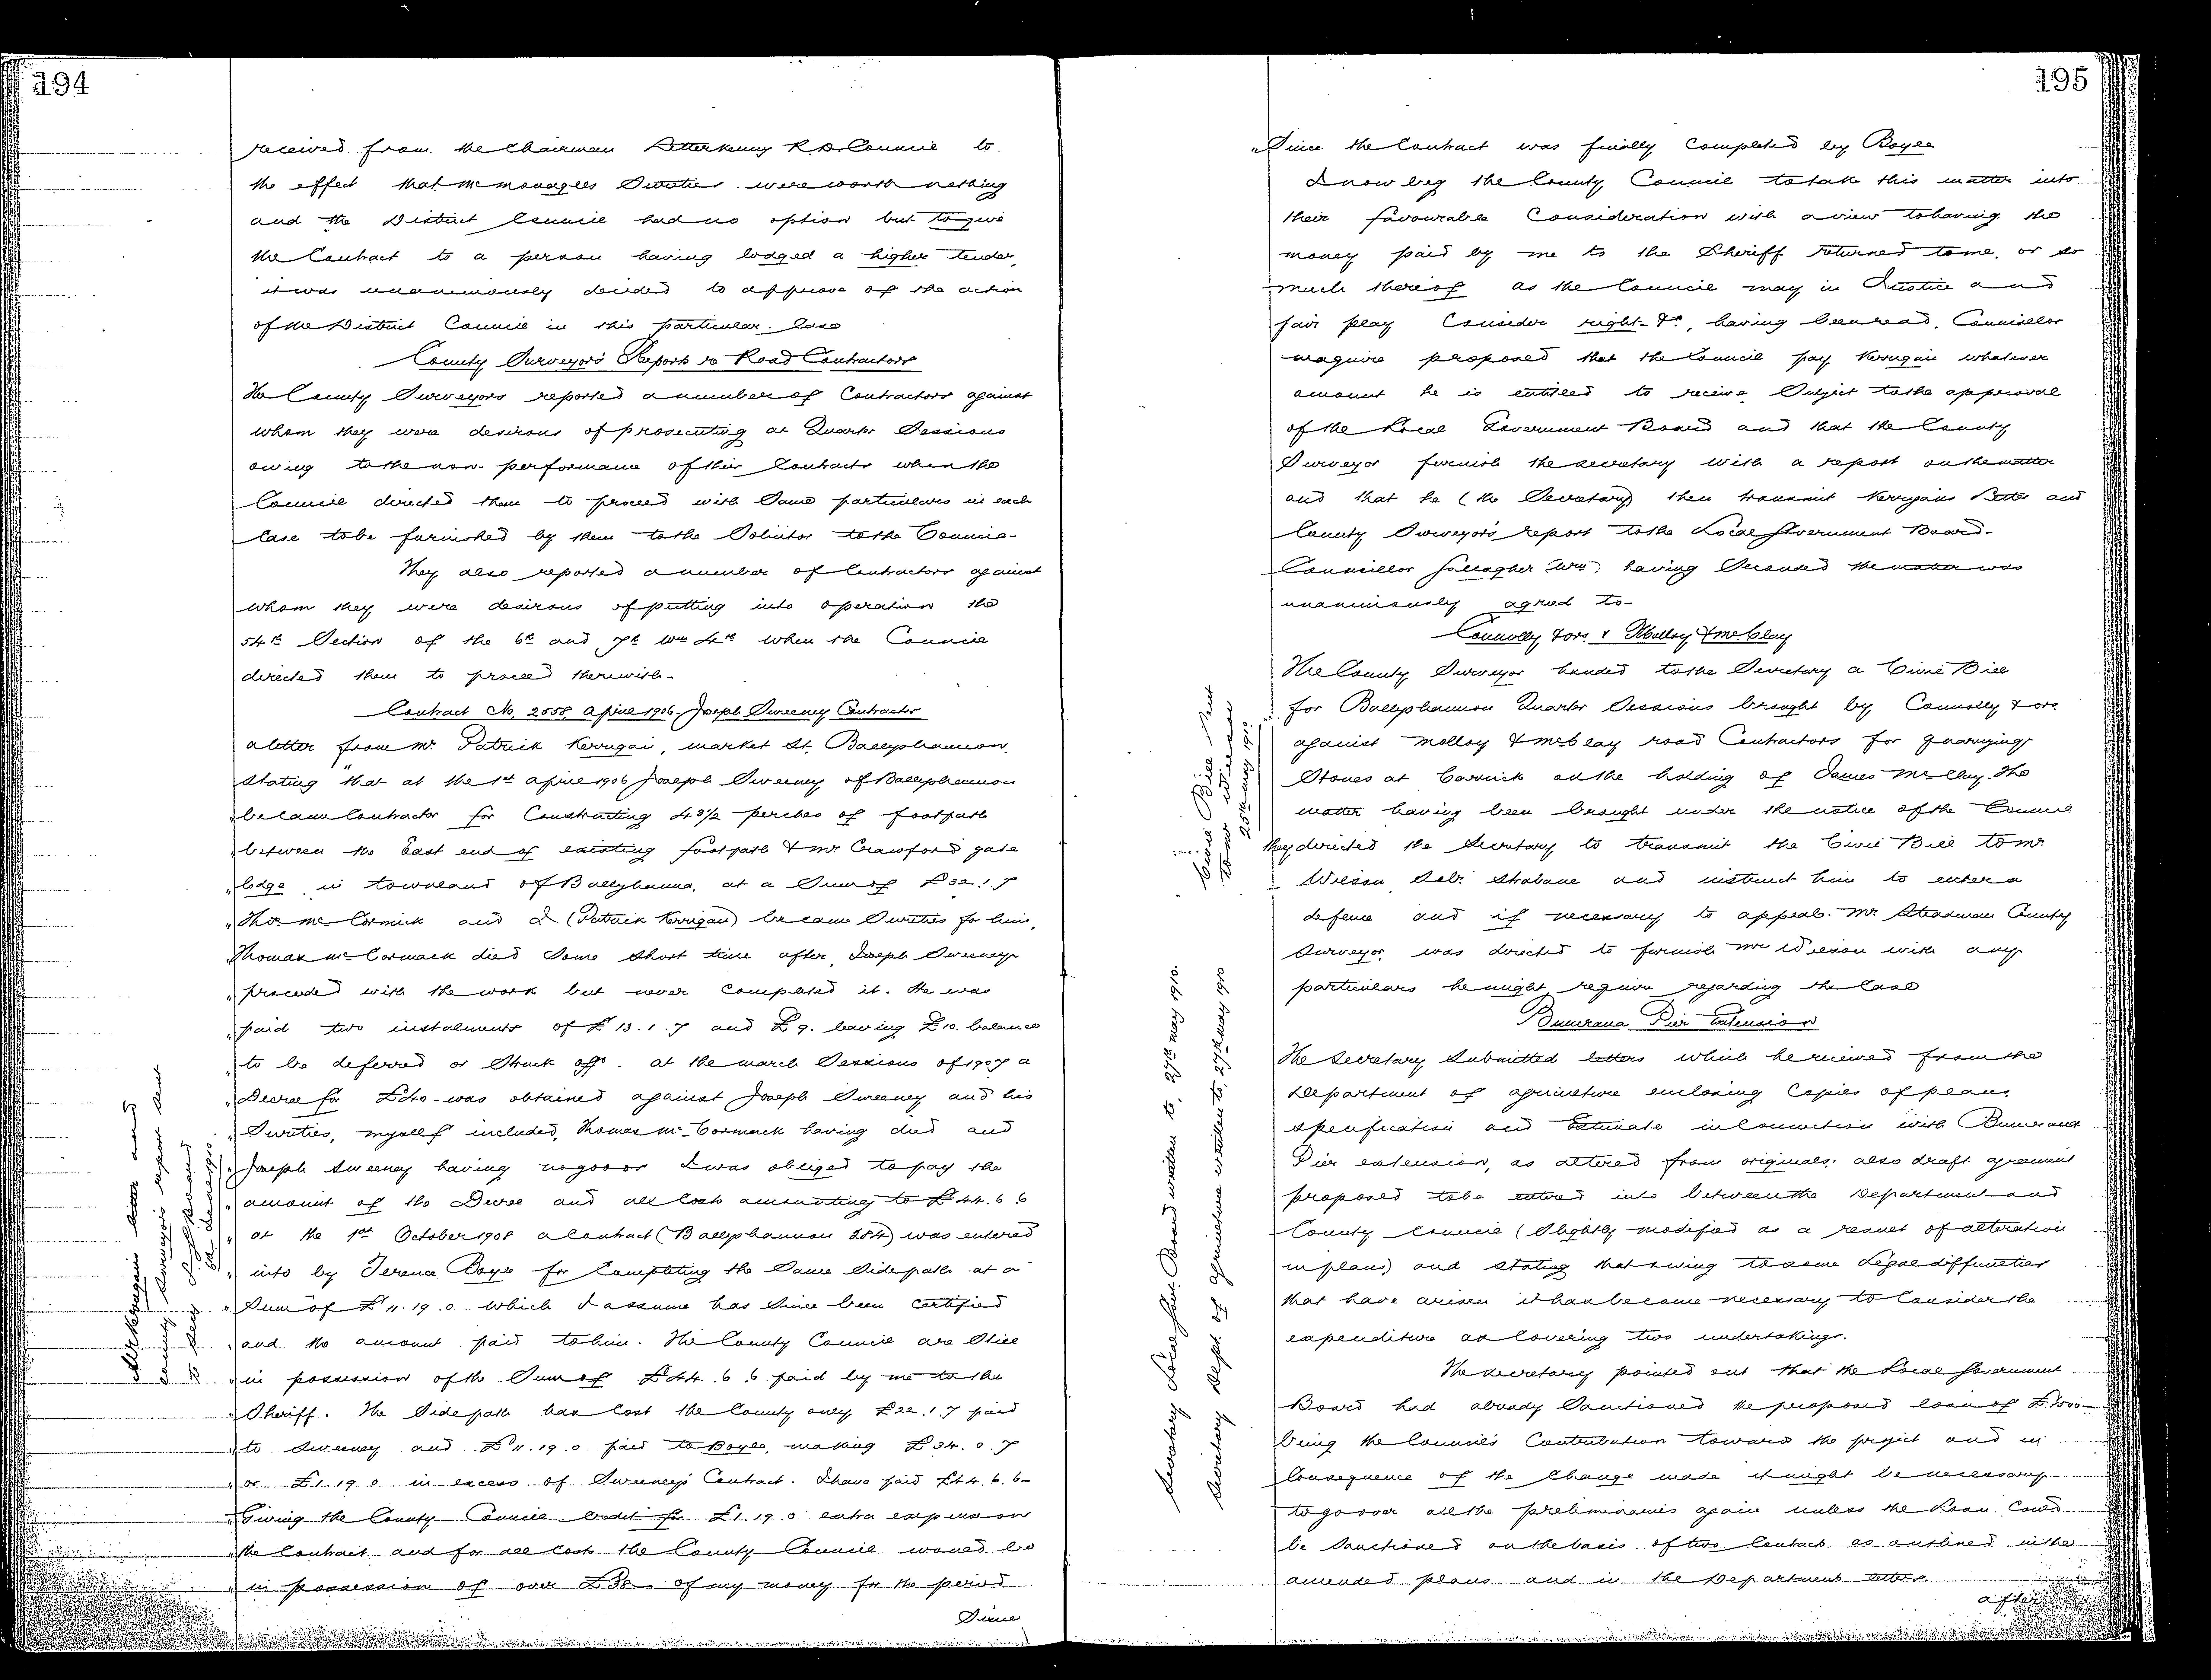 194
received from the Chairman Letterkenny R.D. Council to
the effect that McMonagles Sureties were worth nothing
and the District Council had no option but to give
the Contract to a person having lodged a higher tender,
it was unanimously decided to approve of the action
of the District Council in this particular Case
County Surveyors Reports re Road Contractors
The County Surveyors reported a number of Contractors against
whom they were desirous of prosecuting at Quarter Sessions
owing to the non-performance of their Contracts when the
Council directed them to proceed with Same particulars in each
Case to be furnished by them to the Solicitor to the Council-
They also reported a number of Contractors against
whom they were desirous of putting into operation the
54th Section of the 6th and 7th Wm 4th when the Council
directed them to proceed therewith-
Contract No. 2558 April 1906. Joseph Sweeney Contractor
a letter from Mr Patrick Kerrigan, market St. Ballyshannon.
Stating "that at the 1st April 1906 Joseph Sweeney of Ballyshannon
" became Contractor for Constructing 43½ perches of footpath
" between the East end of existing footpath & Mr Crawford's gate
" lodge in townland of Ballyhanna, at a Sum of £32.1.7
" Thos McCormick and I (Patrick Kerrigan) became Sureties for him,
" Thomas McCormack died Some Short time after, Joseph Sweeney
" proceeded with the work but never Completed it. He was
" paid two instalments of £13.1.7 and £9. leaving £10. balance
" to be deferred or Struck off. at the march Sessions of 1907 a
" Decree for £40- was obtained against Joseph Sweeney and his
" Sureties, myself included, Thomas McCormack having died and
" Joseph Sweeney having no goods I was obliged to pay the
" amount of the Decree and all Costs amounting to £44.6.6
" at the 1st October 1908 a Contract (Ballyshannon 284) was entered
" into by Terence Boyle for Completing the Same Sidepath at a
" Sum of £11.19.0 which I assume has Since been Certified
" and the amount paid to him. The County Council are Still
" in possession of the Sum of £44.6.6 paid by me to the
" Sheriff. The Sidepath has Cost the County only £22.1.7 paid
" to Sweeney and £11.19.0 paid to Boyle, making £34.0.7
" or £1.19.0 in excess of Sweeney's Contract. I have paid £44.6.6-
" Giving the County Council Credit for £1.19.0 extra expense on
" the Contract and for all Costs the County Council would be
" in possession of over of my money for the period
Since
Mr Kerrigan's letter and
County Surveyor's report sent
to Secy
195
" Since the Contract was finally Completed by Boyle
I now beg the County Council to take this matter into
their favourable Consideration with a view to having the
money paid by me to the Sheriff returned to me, or so
much thereof as the Council may in Justice and
fair play Consider right- &c, having been read, Councillor
Maguire proposed that the Council pay Kerrigan whatever
amount he is entitled to receive Subject to the approval
of the Local Government Board and that the County
Surveyor furnish the Secretary with a report on the matter
and that he (the Secretary) then transmit Kerrigans letter and
County Surveyors report to the Local Government Board-
Councillor Gallagher (Wm) having Seconded the motion was
unanimously agreed to-
Connolly & ors. v Molloy & McClay
The County Surveyor handed to the Secretary a Civil Bill
for Ballyshannon Quarter Sessions brought by Connolly & ors
against Molloy & McClay road Contractors for quarrying
Stones at Carrick on the holding of James McClay. The
matter having been brought under the notice of the Council
they directed the Secretary to transmit the Civil Bill to Mr
Wilson Solr. Strabane and instruct him to enter a
defence and if necessary to appeal. Mr Steadman County
Surveyor was directed to furnish Mr Wilson with any
particulars he might require regarding the Case
Buncrana Pier Extension
The Secretary Submitted letters which he received from the
Department of Agriculture enclosing Copies of plans,
specification and Estimate in Connection with Buncrana
Pier extension, as altered from originals; also draft agreement
proposed to be entered into between the Department and
County Council (Slightly modified as a result of alteration
in plans) and Stating that owing to some Legal difficulties
that have arisen it has become necessary to Consider the
expenditure as Covering two undertakings.
The Secretary pointed out that the Local Government
Board had already Sanctioned the proposed loan of
being the Council's Contribution toward the project and in
Consequence of the Change made it might be necessary
to go over all the preliminaries again unless the loan Could
be Sanctioned on the basis of two Contracts as outlined in the
amended plans and in the Department letters
after
Civil Bill Sent
to Mr Wilson
25th May 1910.
Secretary Local Govt. Board written to, 27th May 1910.
Secretary Dept. of Agriculture written to, 27th May 1910